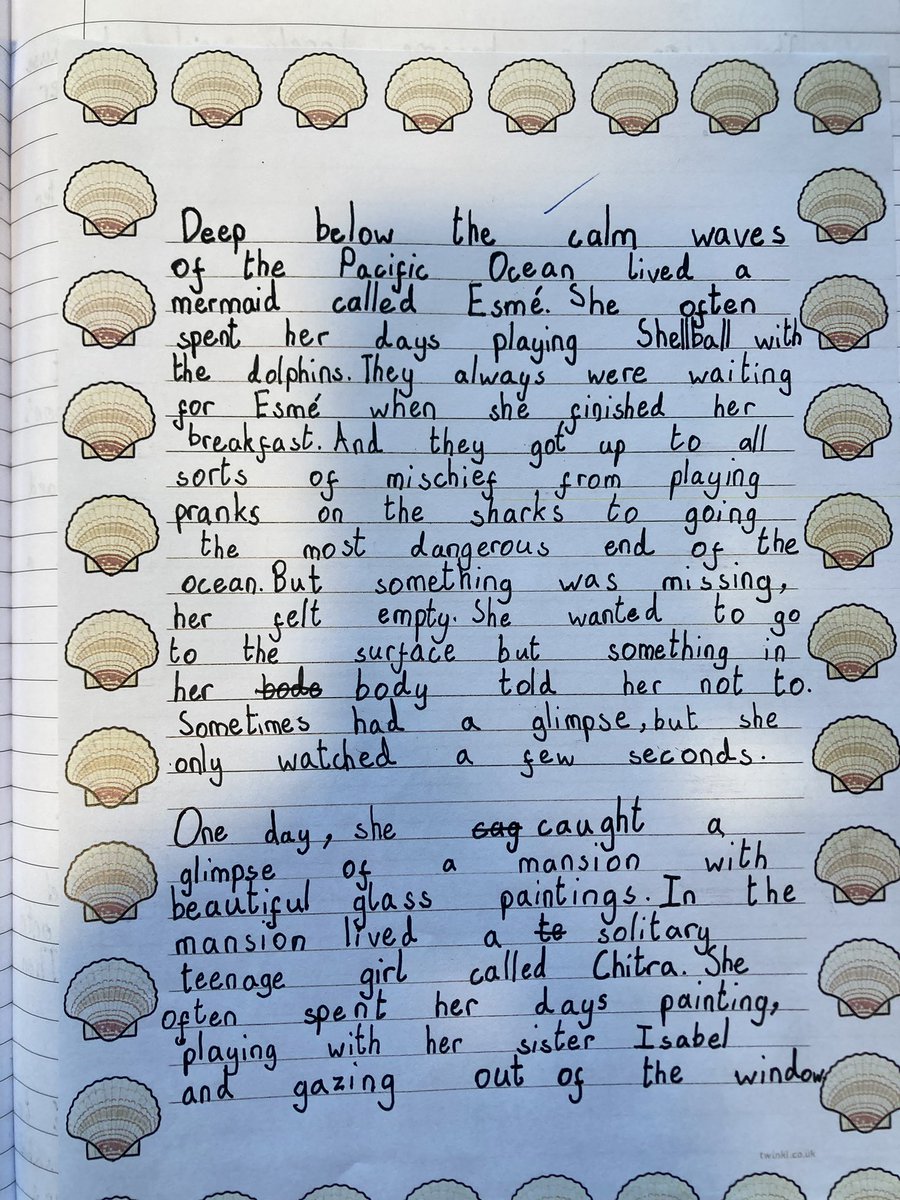 Deep below the calm waves
of the Pacific Ocean lived a
mermaid called Esmé. She often
spent her days playing Shellball with
the dolphins. They always were waiting
for Esmé when she finished her
breakfast. And they got up to all
sorts of mischief from playing
pranks on the sharks to going
the most dangerous end of the
ocean. But something was missing,
her felt empty. She wanted to go
to the surface but something in
her bode body told her not to.
Sometimes had a glimpse, but she
only watched a few seconds.
One day, she cag caught a
glimpse of a mansion with
beautiful glass paintings. In the
mansion lived a te solitary
teenage girl called Chitra. She
often spent her days painting,
playing with her sister Isabel
and gazing out of the window
twinkl.co.uk